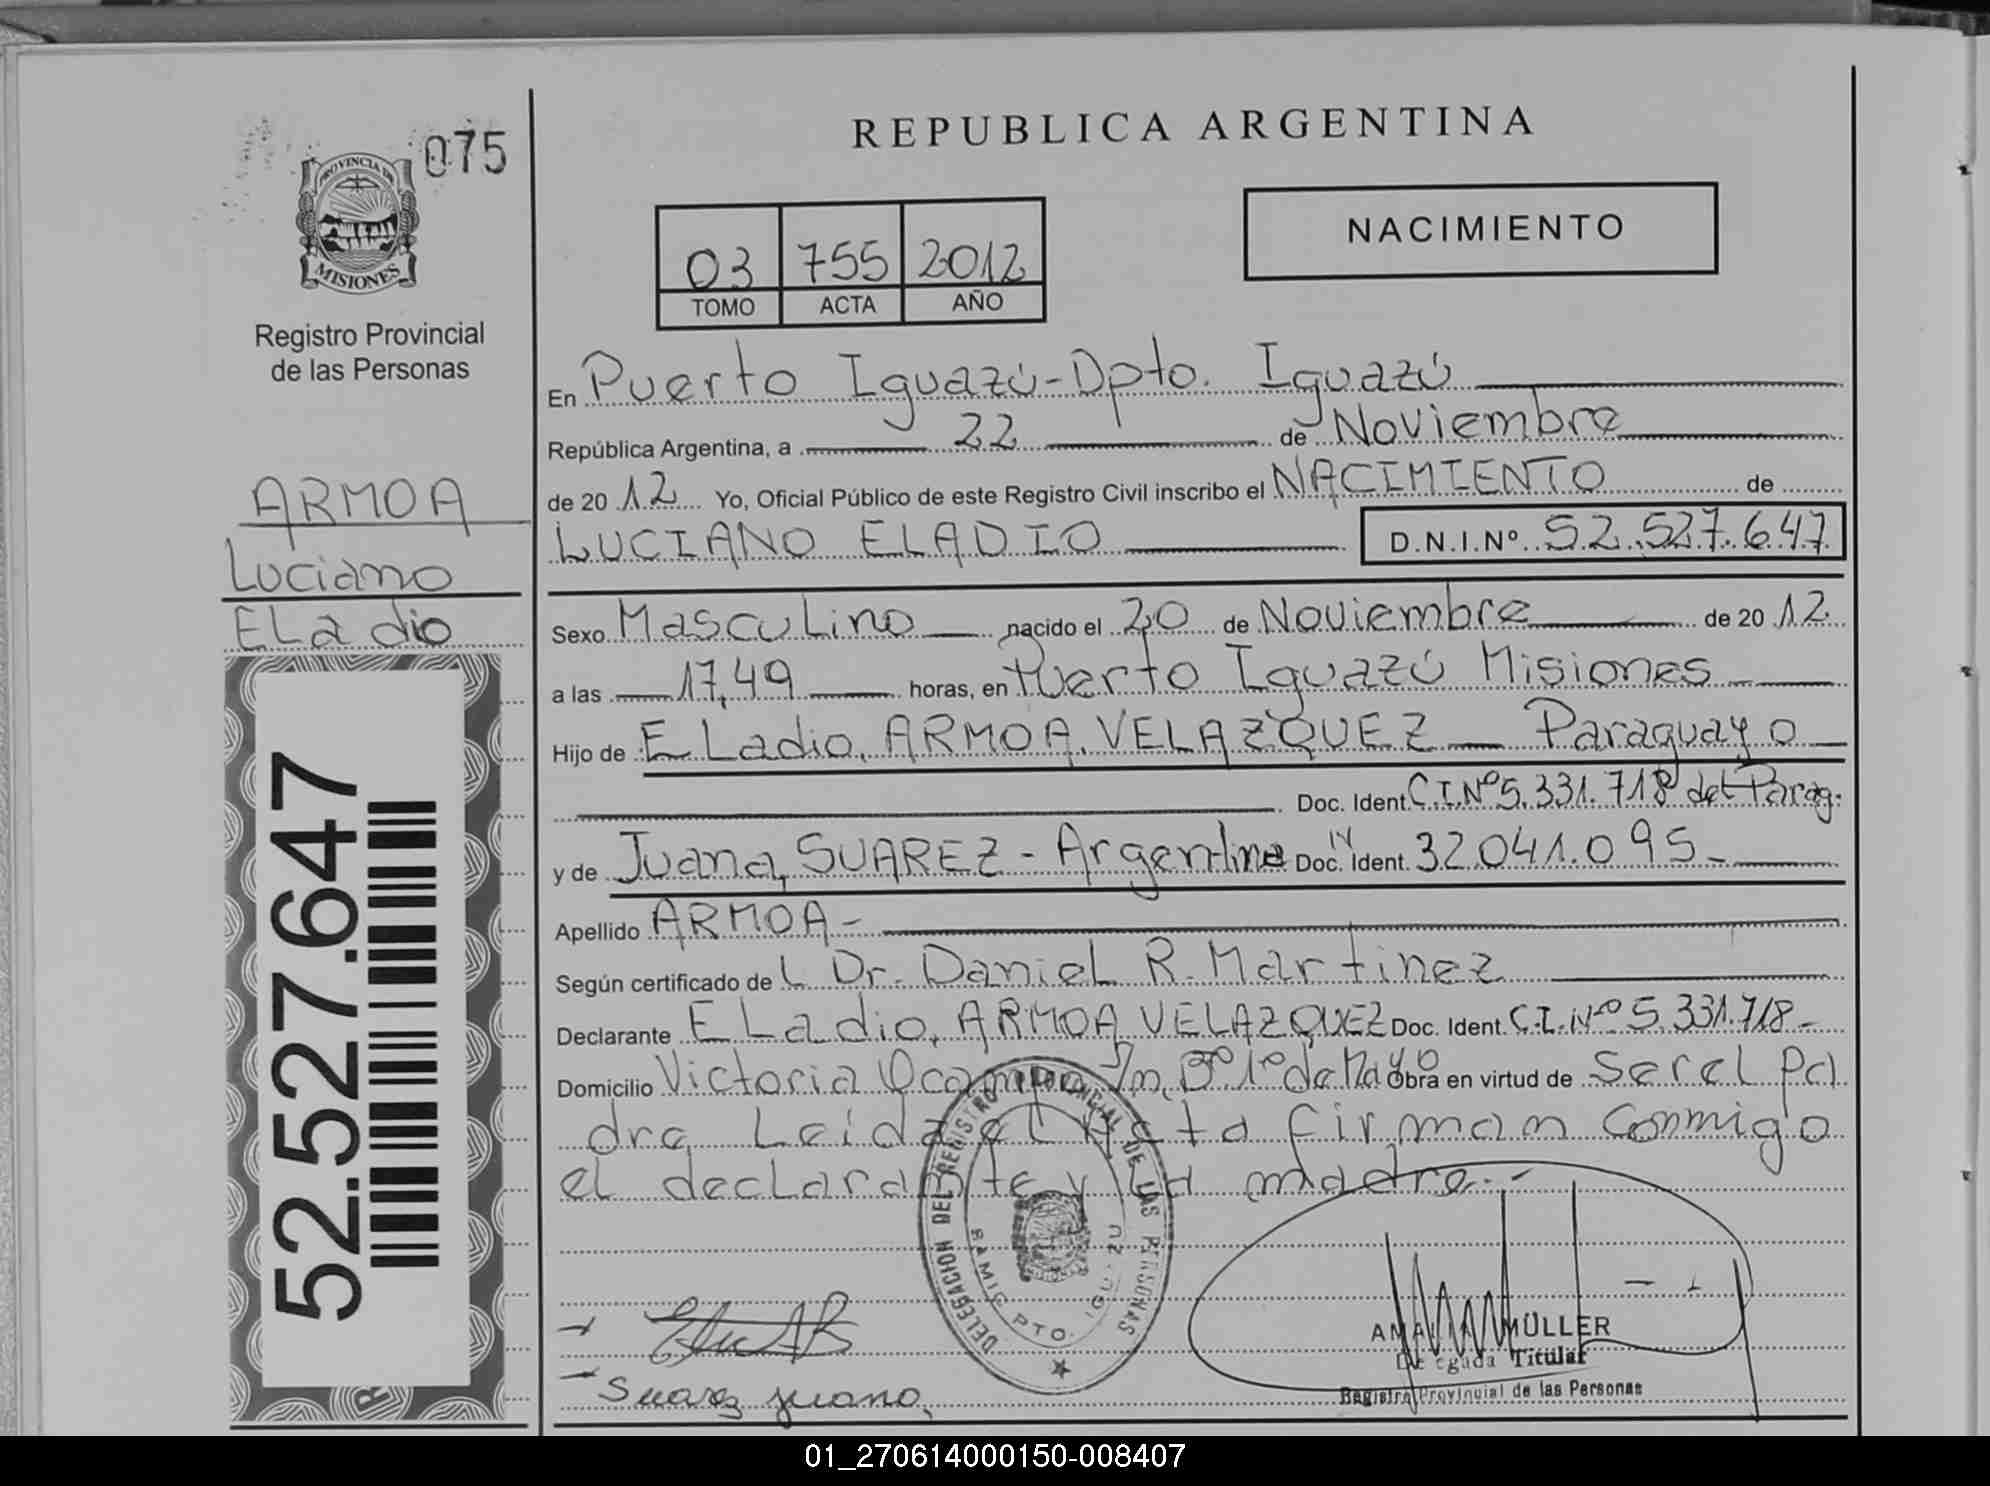 075
PROVINCIA DE
MISIONES
Registro Provincial
de las Personas
ARMOA
Luciano
Eladio
52.527.647
REPUBLICA ARGENTINA
NACIMIENTO
03 755 2012
TOMO ACTA AÑO
En Puerto Iguazú-Dpto. Iguazú
República Argentina, a 22 de Noviembre
de 20 12 Yo, Oficial Público de este Registro Civil inscribo el NACIMIENTO de
LUCIANO ELADIO D.N.I.Nº 52.527.647
Sexo Masculino nacido el 20 de Noviembre de 20 12
a las 17,49 horas, en Puerto Iguazú Misiones
Hijo de Eladio, ARMOA VELAZQUEZ Paraguayo
Doc. Ident. C.I.Nº 5.331.718 del Parag.
y de Juana, SUAREZ - Argentina Doc. Ident. 32.041.095-
Apellido ARMOA-
Según certificado de L Dr. Daniel R. Martinez
Declarante Eladio, ARMOA VELAZQUEZ Doc. Ident. C.I.Nº 5.331.718-
Domicilio Victoria Ocampo S/n, Bº 1º de Mayo Obra en virtud de Ser el Pa
dre Leida el Acta firman conmigo
el declarante y la madre.-
DELEGACION DEL REGISTRO PROVINCIAL DE LAS PERSONAS
PTO. IGUAZU
Suarez Juana.
AMALIA MÜLLER
Delegada Titular
Registro Provincial de las Personas
01_270614000150-008407